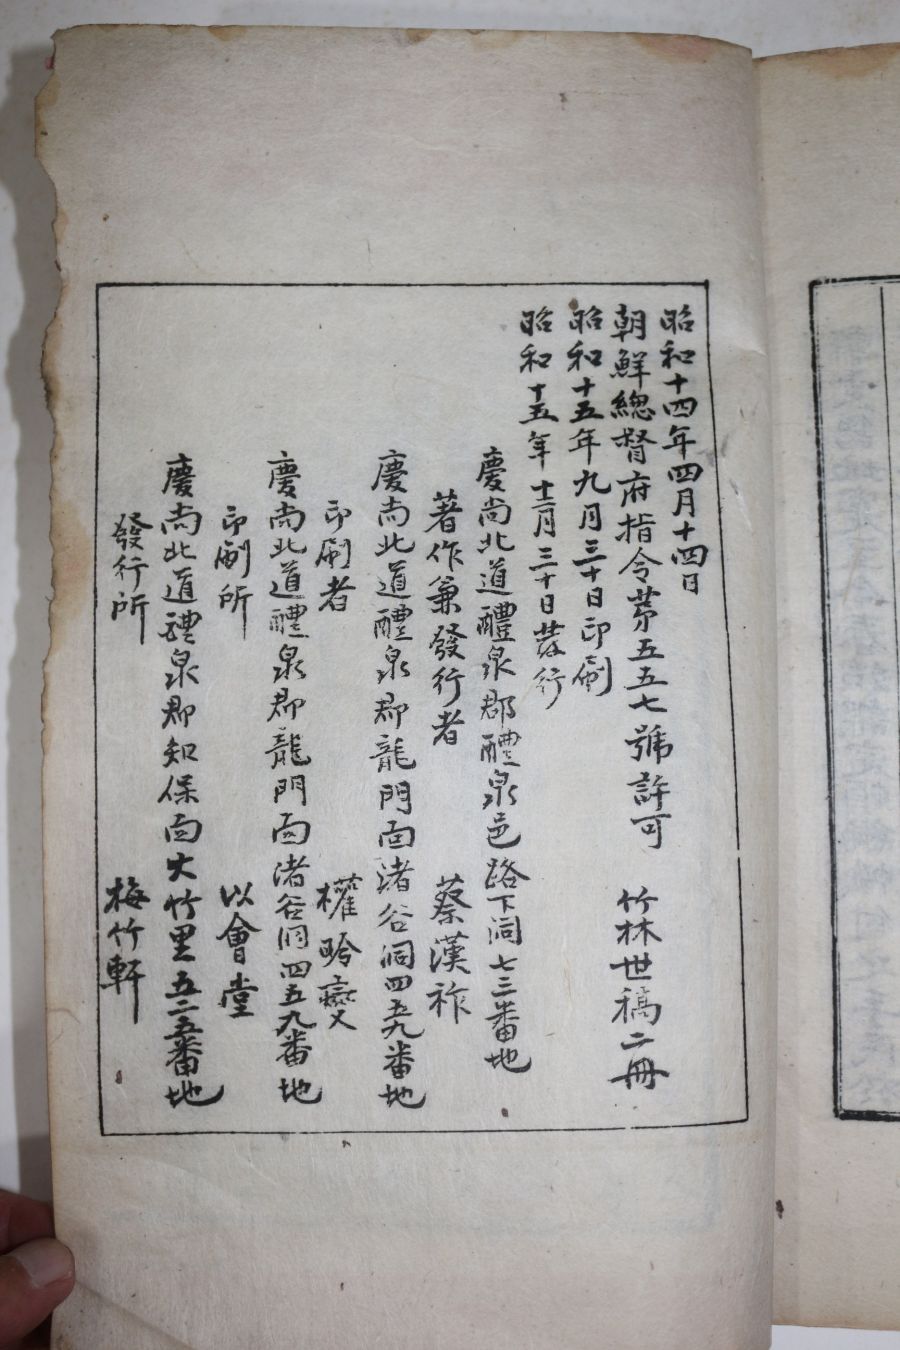 昭和十四年四月十四日
朝鮮總督府指令第五五七號許可 竹林世稿二冊
昭和十五年九月三十日印刷
昭和十五年十二月三十日發行
慶尚北道醴泉郡醴泉邑路下洞七三番地
著作兼發行者 蔡漢祚
慶尚北道醴泉郡龍門面渚谷洞四五九番地
印刷者 權昤燮
慶尚北道醴泉郡龍門面渚谷洞四五九番地
印刷所 以會堂
慶尚北道醴泉郡知保面大竹里五二五番地
發行所 梅竹軒